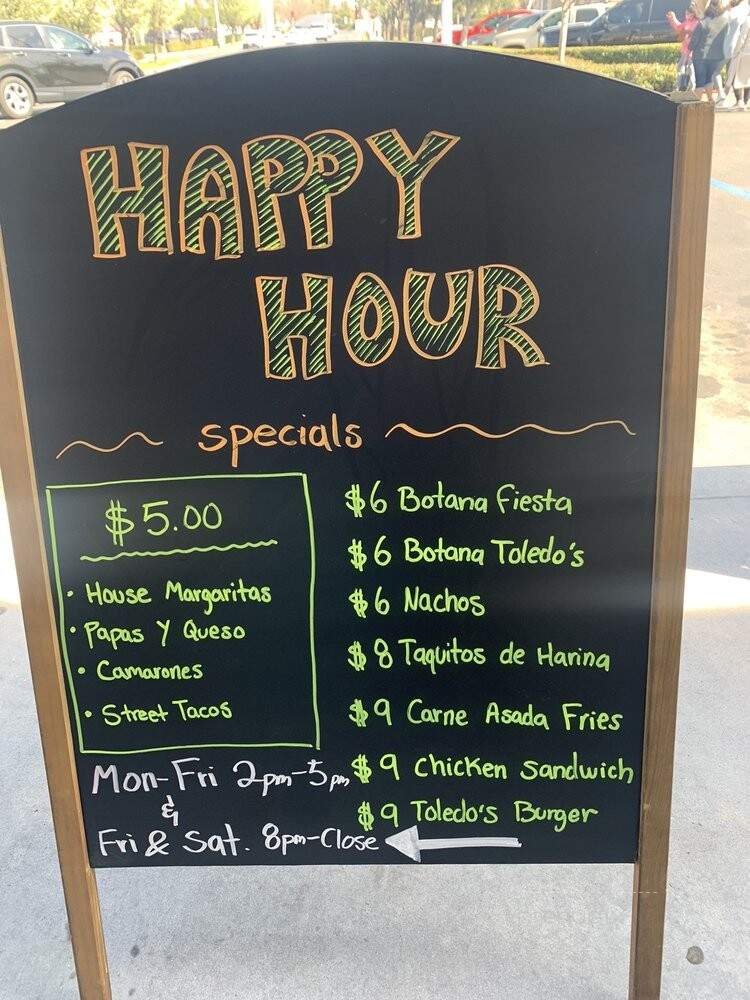 HAPPY
HOUR
specials
$5.00
• House Margaritas
• Papas Y Queso
• Camarones
• Street Tacos
$6 Botana Fiesta
$6 Botana Toledo's
$6 Nachos
$8 Taquitos de Harina
$9 Carne Asada Fries
$9 Chicken Sandwich
$9 Toledo's Burger
Mon-Fri 2pm-5pm
&
Fri & Sat. 8pm-Close